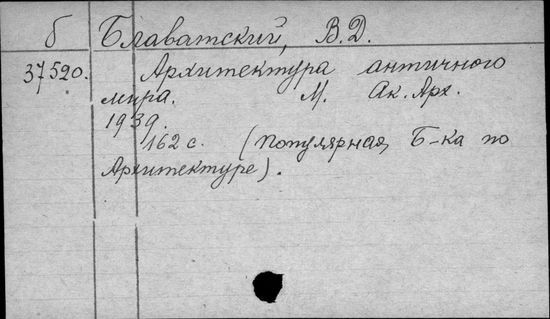 б Блаватский, В.Д.
37520. Архитектура античного
мира. М. Ак. Арх.
1939.
162 с. (Популярная Б-ка по
Архитектуре).